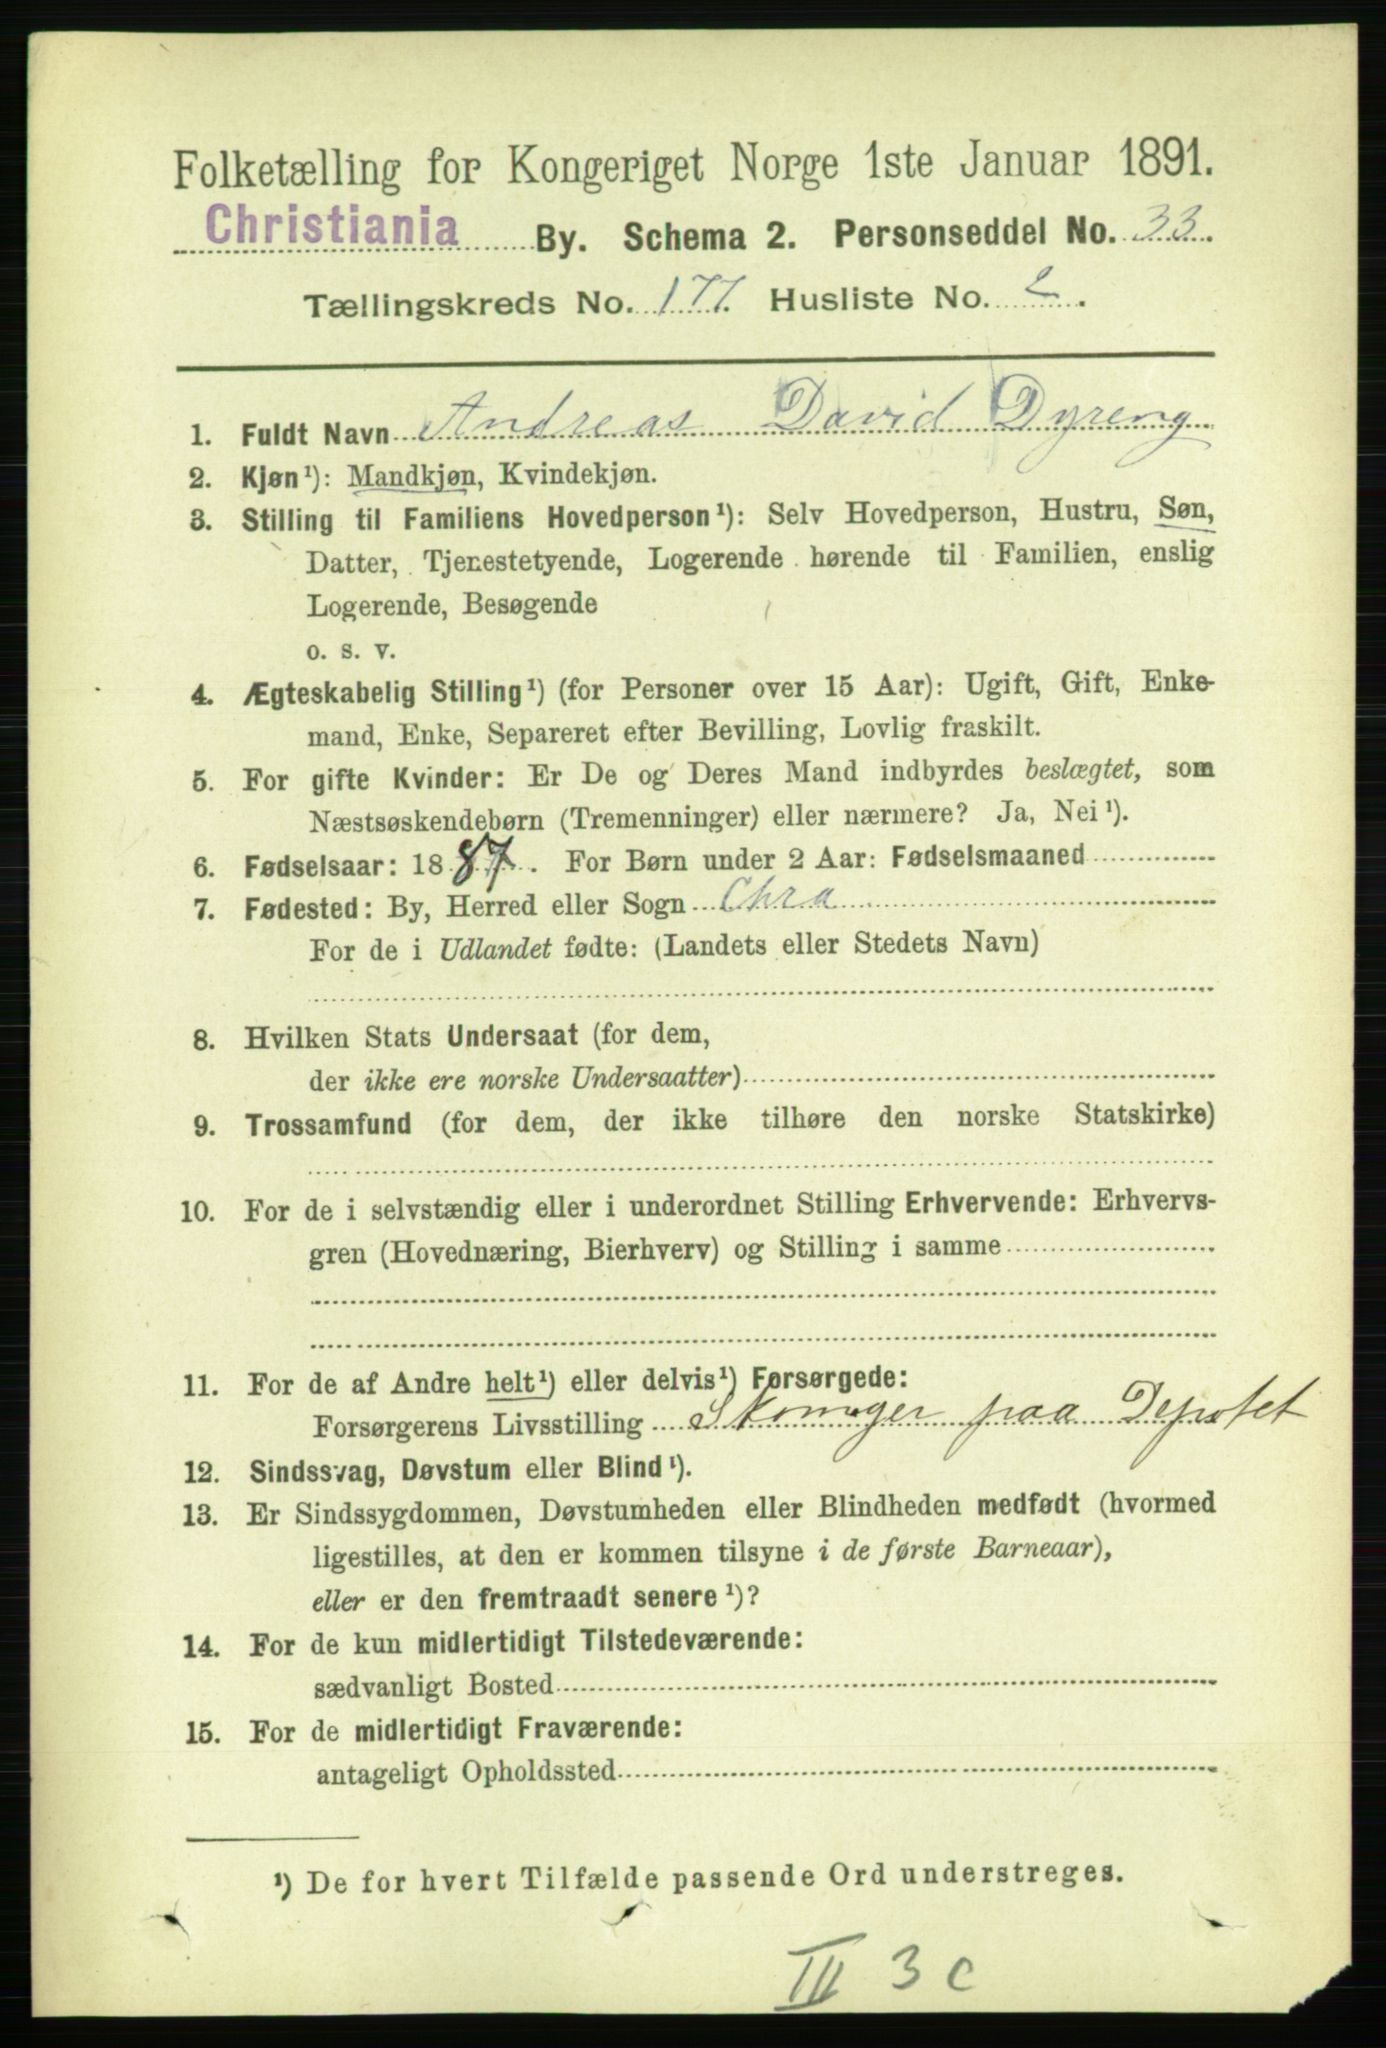 Folketælling for Kongeriget Norge 1ste Januar 1891.
Christiania By. Schema 2. Personseddel No. 33.
Tællingskreds No. 177. Husliste No. 2.
1. Fuldt Navn Andreas David Dyreng
2. Kjøn¹): Mandkjøn, Kvindekjøn.
3. Stilling til Familiens Hovedperson¹): Selv Hovedperson, Hustru, Søn,
Datter, Tjenestetyende, Logerende hørende til Familien, enslig
Logerende, Besøgende
o. s. v.
4. Ægteskabelig Stilling¹) (for Personer over 15 Aar): Ugift, Gift, Enke-
mand, Enke, Separeret efter Bevilling, Lovlig fraskilt.
5. For gifte Kvinder: Er De og Deres Mand indbyrdes beslægtet, som
Næstsøskendebørn (Tremenninger) eller nærmere? Ja, Nei¹).
6. Fødselsaar: 1887. For Børn under 2 Aar: Fødselsmaaned
7. Fødested: By, Herred eller Sogn Chra
For de i Udlandet fødte: (Landets eller Stedets Navn)
8. Hvilken Stats Undersaat (for dem,
der ikke ere norske Undersaatter)
9. Trossamfund (for dem, der ikke tilhøre den norske Statskirke)
10. For de i selvstændig eller i underordnet Stilling Erhvervende: Erhvervs-
gren (Hovednæring, Bierhverv) og Stilling i samme
11. For de af Andre helt¹) eller delvis¹) Forsørgede:
Forsørgerens Livsstilling paa Depotet
12. Sindssvag, Døvstum eller Blind¹).
13. Er Sindssygdommen, Døvstumheden eller Blindheden medfødt (hvormed
ligestilles, at den er kommen tilsyne i de første Barneaar),
eller er den fremtraadt senere¹)?
14. For de kun midlertidigt Tilstedeværende:
sædvanligt Bosted
15. For de midlertidigt Fraværende:
antageligt Opholdssted
¹) De for hvert Tilfælde passende Ord understreges.
III 3 c